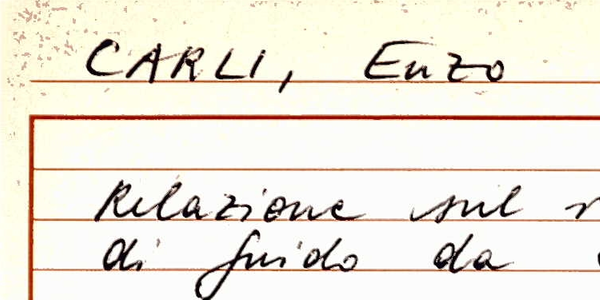 CARLI, Enzo
Relazione sul
di Guido da